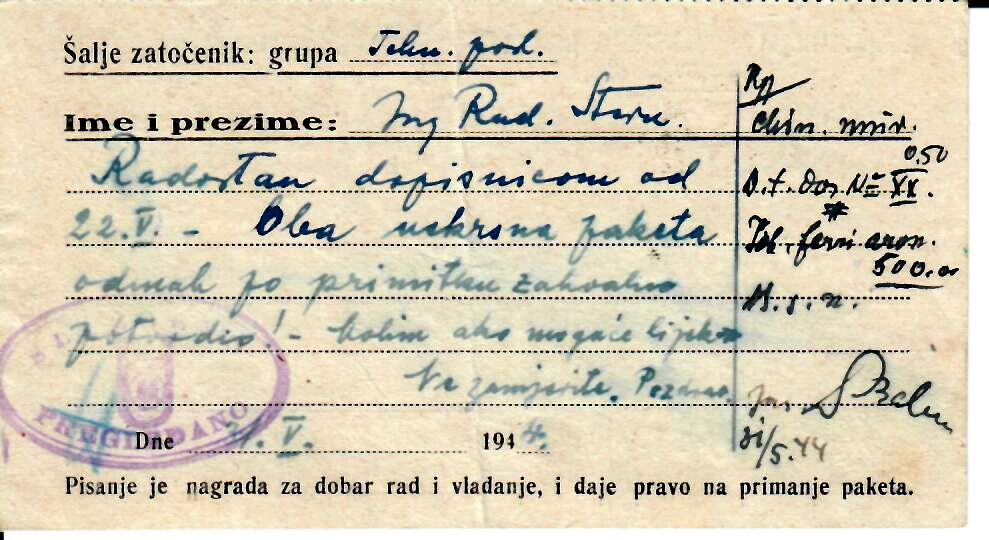 Šalje zatočenik: grupa Tehn. pod.
Ime i prezime: Ing Rud. Stern.
Radostan dopisnicom od
22.V. - Oba uskrsna paketa
odmah po primitku zahvalno
potvrdio! - Molim ako moguće lijek
Ne zamjerite. Pozdrav
Dne 31.V. 1944.
Pisanje je nagrada za dobar rad i vladanje, i daje pravo na primanje paketa.
Rp
Chin. mur.
0.50
D.t. dos № XX.
ferri arom.
500.00
M.s.n.
31/5.44
PREGLEDANO